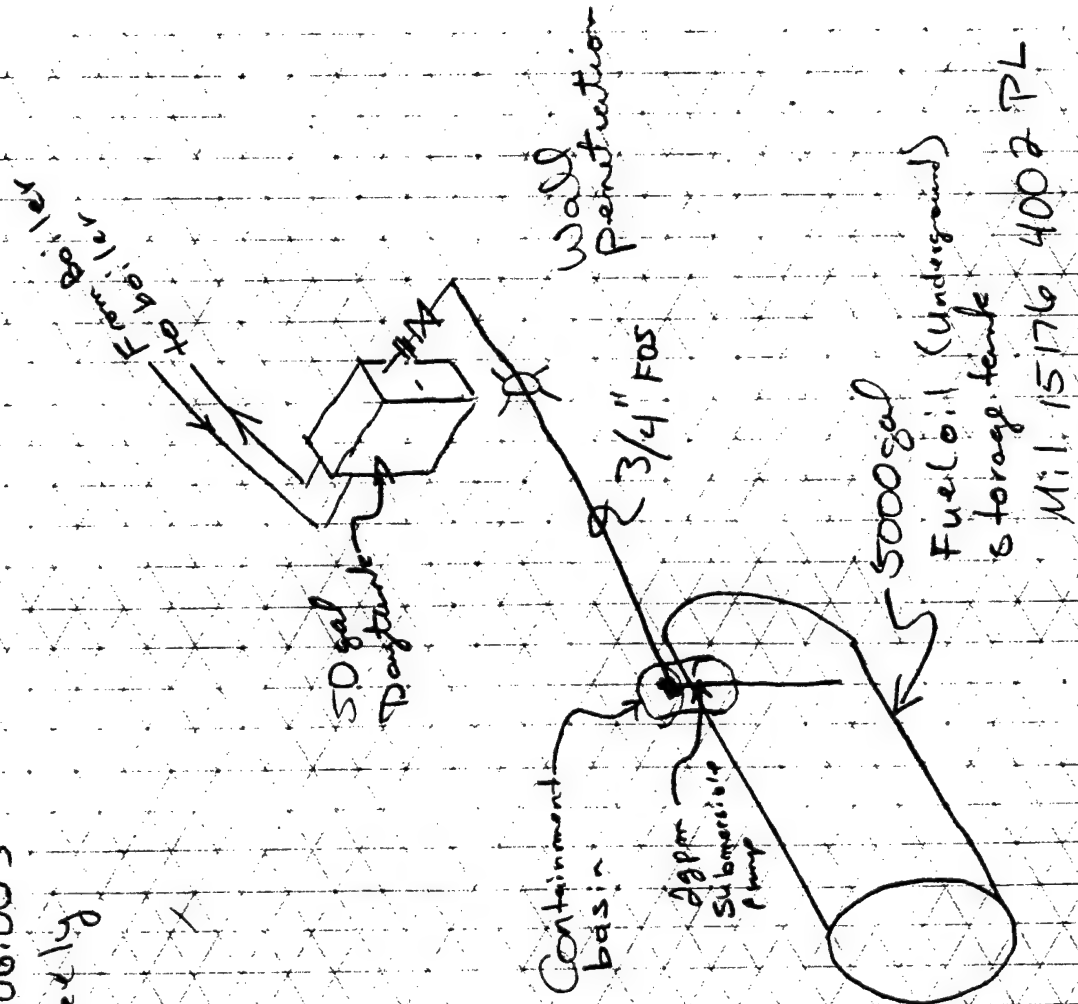 From Boiler
to boiler
50 gal
Daytank
Wall
Penetration
3/4" FOS
Containment
basin
2gpm
Submersible
Pump
5000gal
Fuel oil (Underground)
storage tank
Mil. 15176 4002 PL